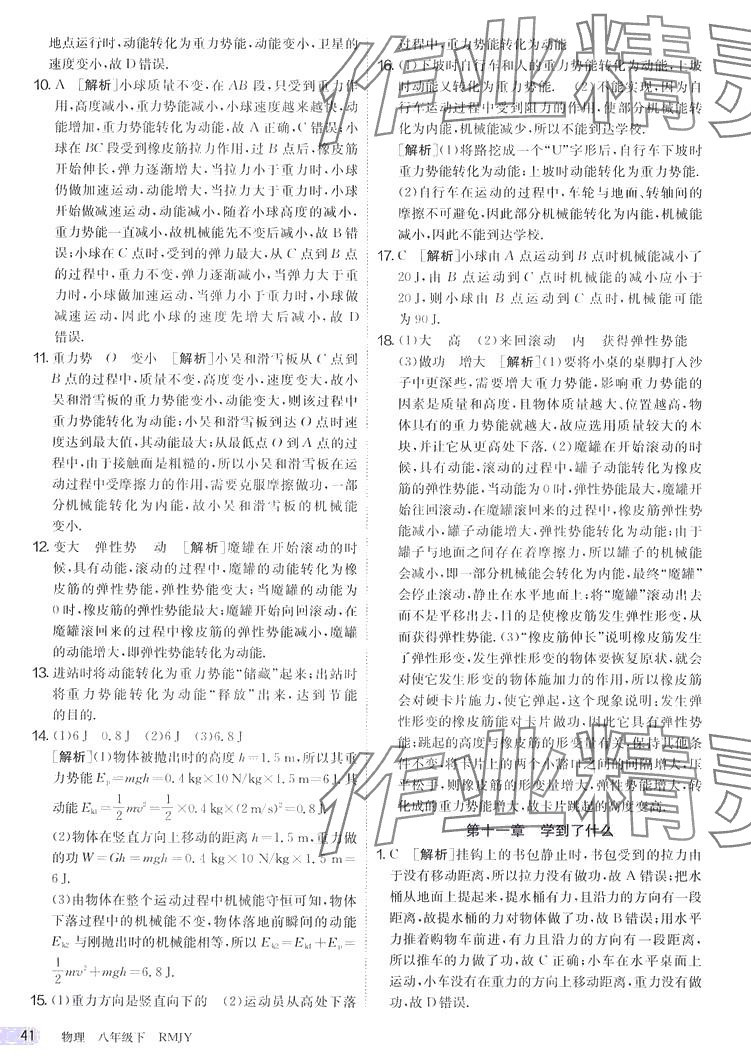 地点运行时,动能转化为重力势能,动能变小,卫星的
速度变小,故D错误.
10. A [解析]小球质量不变,在AB段,只受到重力作
用,高度减小,重力势能减小,小球速度越来越快,动
能增加,重力势能转化为动能,故A正确,C错误;小
球在BC段受到橡皮筋拉力作用,过B点后,橡皮筋
开始伸长,弹力逐渐增大,当拉力小于重力时,小球
仍做加速运动,动能增大,当拉力大于重力时,小球
开始做减速运动,动能减小,随着小球高度的减小,
重力势能一直减小,故机械能先不变后减小,故B错
误;小球在C点时,受到的弹力最大,从C点到B点
的过程中,重力不变,弹力逐渐减小,当弹力大于重
力时,小球做加速运动,当弹力小于重力时,小球做
减速运动,因此小球的速度先增大后减小,故D
错误.
11. 重力势 O 变小 [解析]小吴和滑雪板从C点到
B点的过程中,质量不变,高度变小,速度变大,故小
吴和滑雪的重力势能变小,动能变大,则该过程中
重力势能转化为动能;小吴和滑雪板到达O点时速
度达到最大值,其动能最大;从最低点O到A点的过
程中,由于接触面是粗糙的,所以小吴和滑雪板在运
动过程中受摩擦力的作用,需要克服摩擦做功,一部
分机械能转化为内能,故小吴和滑雪板的机械能
变小.
12. 变大 弹性势 动 [解析]魔罐在开始滚动的时
候,具有动能,滚动的过程中,魔罐的动能转化为橡
皮筋的弹性势能,弹性势能变大;当魔罐的动能为
0时,橡皮筋的弹性势能最大;魔罐开始向回滚动,在
魔罐滚回来的过程中橡皮筋的弹性势能减小,魔罐
的动能增大,即弹性势能转化为动能.
13. 进站时将动能转化为重力势能“储藏”起来;出站时
将重力势能转化为动能“释放”出来,达到节能
的目的.
14. (1)6 J 0.8 J (2)6 J (3)6.8 J
[解析](1)物体被抛出时的高度h=1.5 m,所以其重
力势能Ep=mgh=0.4 kg×10 N/kg×1.5 m=6 J,其
动能Ek1=1/2mv²=1/2×0.4 kg×(2 m/s)²=0.8 J.
(2)物体在竖直方向上移动的距离h=1.5 m,重力做
的功W=Gh=mgh=0.4 kg×10 N/kg×1.5 m=
6 J.
(3)由物体在整个运动过程中机械能守恒可知,物体
下落过程中的机械能不变,物体落地前瞬间的动能
Ek2与刚抛出时的机械能相等,所以Ek2=Ek1+Ep=
1/2mv²+mgh=6.8 J.
15. (1)重力方向是竖直向下的 (2)运动员从高处下落
过程中,重力势能转化为动能
16. (1)下坡时自行车和人的重力势能转化为动能,上坡
时动能又转化为重力势能. (2)不能实现,因为自
行车运动过程中受到阻力的作用,使部分机械能转
化为内能,机械能减少,所以不能到达学校.
[解析](1)将路挖成一个“U”字形后,自行车下坡时
重力势能转化为动能;上坡时动能转化为重力势能.
(2)自行车在运动的过程中,车轮与地面、转轴间的
摩擦不可避免,因此部分机械能转化为内能,机械能
减小,因此不能到达学校.
17. C [解析]小球由A点运动到B点时机械能减小了
20 J,由B点运动到C点时机械能的减小应小于
20 J,则小球由B点运动到C点时,机械能可能
为90 J.
18. (1)大 高 (2)来回滚动 内 获得弹性势能
(3)做功 增大 [解析](1)要将小桌的桌脚打入沙
子中更深些,需要增大重力势能,影响重力势能的
因素是质量和高度,且物体质量越大、位置越高,物
体具有的重力势能就越大,故应选用质量较大的木
块,并让它从更高处下落.(2)魔罐在开始滚动的时
候,具有动能,滚动的过程中,罐子动能转化为橡皮
筋的弹性势能,当动能为0时,弹性势能最大;魔罐开
始往回滚动,在魔罐滚回来的过程中,橡皮筋弹性势
能减小,罐子动能增大,弹性势能转化为动能;由于
罐子与地面之间存在着摩擦力,所以罐子的机械能
会减小,即一部分机械能转化为内能,最终“魔罐”
会停止滚动,静止在水平地面上;将“魔罐”滚动出去
而不是平移出去,目的是使橡皮筋发生弹性形变,从
而获得弹性势能.(3)“橡皮筋伸长”说明橡皮筋发生
了弹性形变,发生弹性形变的物体要恢复原状,就会
对使它发生形变的物体施加力的作用,所以橡皮筋
会对硬卡片施力,使它弹起,这个现象说明:发生弹
性形变的橡皮筋能对卡片做功,因此它具有弹性势
能;跳起的高度与橡皮筋的形变量有关,保持其他条
件不变,将卡片上的两个小路口之间的间隔增大,压
平松手,则橡皮筋的形变量增大,弹性势能增大,转
化成的重力势能增大,故卡片跳起的高度变高.
第十一章 学到了什么
1. C [解析]挂钩上的书包静止时,书包受到的拉力由
于没有移动距离,所以拉力没有做功,故A错误;把水
桶从地面上提起来,提水桶有力,且沿力的方向有一段
距离,故提水桶的力对物体做了功,故B错误;用水平
力推着购物车前进,有力且沿力的方向有一段距离,
所以推车的力做了功,故C正确;小车在水平桌面上
运动,小车没有在重力的方向上移动距离,重力没有做
功,故D错误.
41 物理 八年级下 RMJY
作业精灵
作业精灵